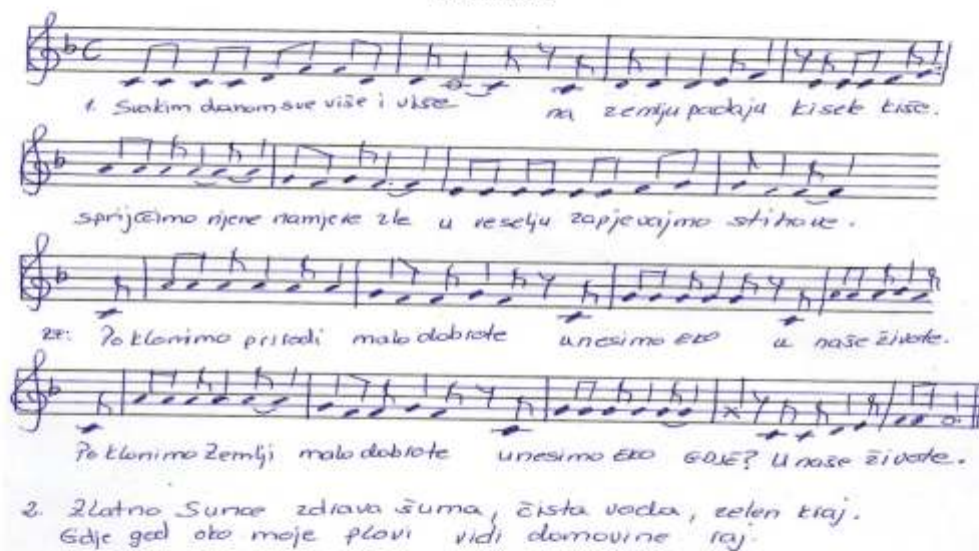 1. Svakim danom sve više i više na zemlju padaju kisele kiše.
spriječimo njene namjere zle u veselju zapjevajmo stihove.
Poklonimo prirodi malo dobrote unesimo EKO u naše živote.
Poklonimo Zemlji malo dobrote unesimo EKO GDJE? U naše živote.
2. Zlatno Sunce zdrava šuma, čista voda, zelen kraj.
Gdje god oko moje plovi vidi domovine raj.